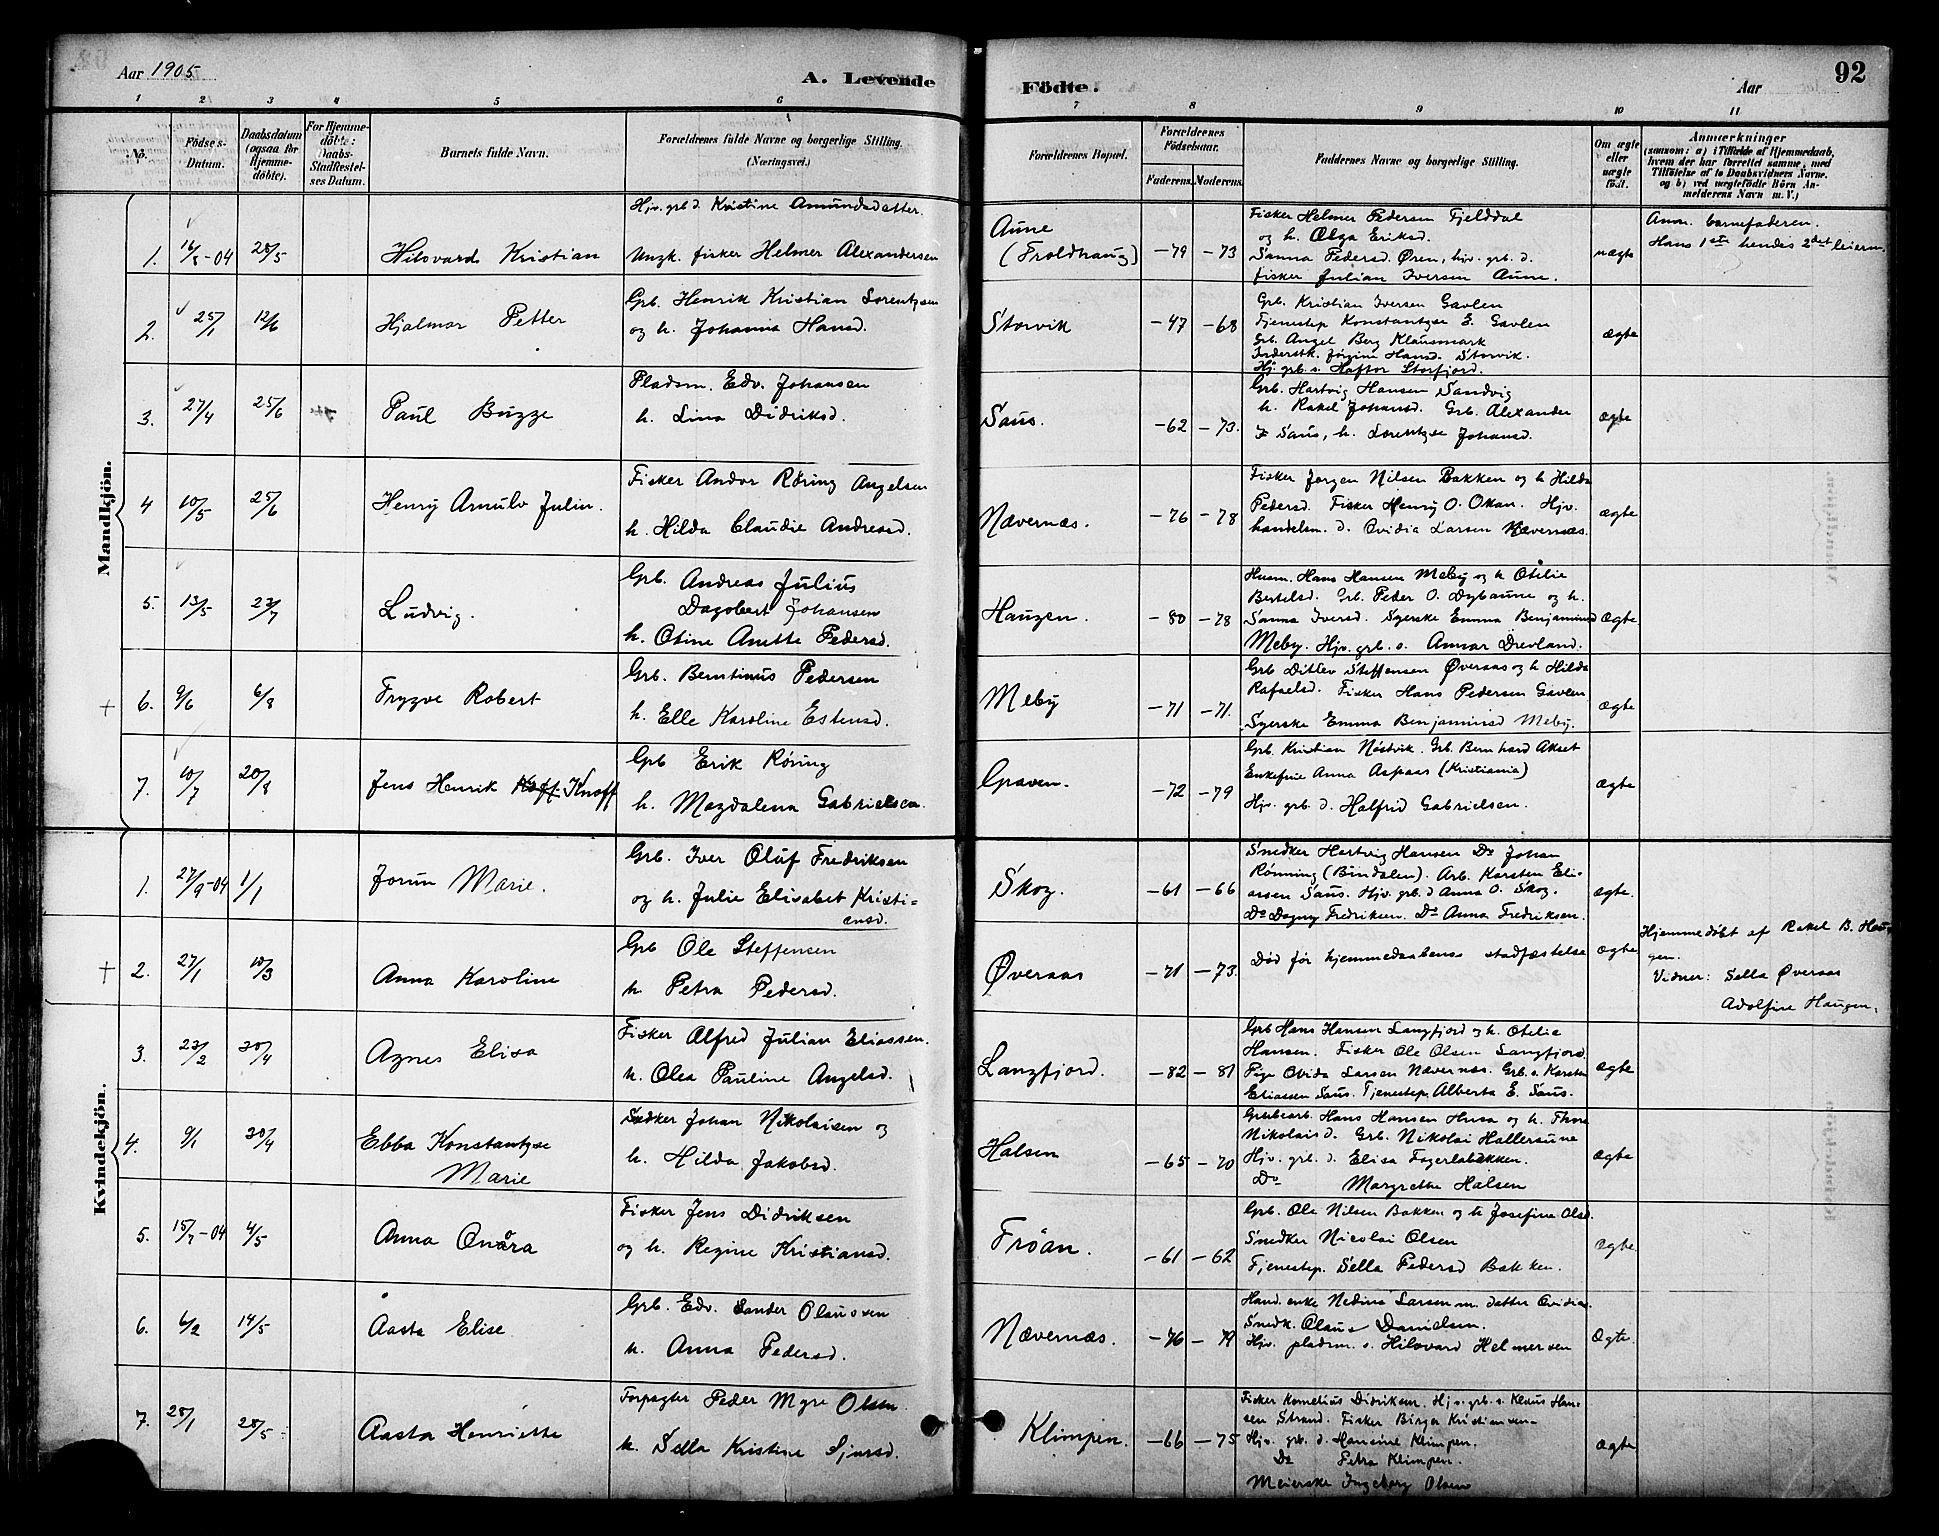 Aar 1905
A. Levende
Födte.
Aar
92
1 2 3 4 5 6 7 8 9 10 11
No.
Födsels-Datum.
Daabsdatum (ogsaa for Hjemme-döbte).
For Hjemme-döbte: Daabs-Stadfæstel-ses Datum.
Barnets fulde Navn.
Forældrenes fulde Navne og borgerlige Stilling. (Næringsvei.)
Forældrenes Bopæl.
Forældrenes Födselsaar.
Faderens. Moderens.
Faddernes Navne og borgerlige Stilling.
Om ægte eller uægte födt.
Anmærkninger
(saasom: a) i Tilfælde af Hjemmedaab,
hvem der har forrettet samme, med
Tilföielse af to Daabsvidners Navne.
og b) ved uægtefödte Börn An-
melderens Navn m. V.)
Mandkjön.
1. 16/8-04 28/5 Hilsvard Kristian
Hjv. grb d. Kristine Amundsdatter.
Ungk. fisker Helmer Alexandersen
Aune
(Troldhaug)
-79 -73
Fisker Helmer Pedersen Fjelddal
og h. Olga Eriksd.
Sanna Pedersd. Øren, hjv. grb. d.
fisker Julian Iversen Aune.
uægte
Anm. barnefaderen.
Hans 1ste hendes 2det leierm.
2. 25/1 12/6 Hjalmar Petter
Grb. Henrik Kristian Lorentzsen
og h. Johanna Hansd.
Storvik
-47 -68
Grb. Kristian Iversen Gavlen
Tjenestep Konstantyse E. Gavlen
Grb. Angel Berg Klausmark
Inderstk. Jørgine Hansd. Storvik.
Hj. grb. s. Haftor Storfjord.
ægte
3. 27/4 25/6 Paul Bugge
Pladsm. Edv. Johansen
h. Lina Didriksd.
Saus.
-62 -73.
Grb. Hartvig Hansen Sandvig
h. Rakel Johansd. Grb. Alexander
J. Saus, h. Lorentyse Johansd.
ægte
4 10/5 25/6 Henry Arnulv Julin.
Fisker Andor Røring Angelsen
h. Hilda Claudie Andreasd.
Nævernæs.
-76 -78
Fisker Jørgen Nilsen Bakken og h Hilda
Pedersd. Fisker Henry O. Okan. Hjv.
handelsm. d. Ovidia Larsen Nævernæs.
ægte
5. 13/5 23/7 Ludvig.
Grb. Andreas Julius
Dagobert Johansen
h. Otine Anette Pedersd.
Haugen.
-80 -78
Husm. Hans Hansen Meby og h Otelie
Bertelsd. Grb. Peder O. Dybaune og h.
Sanna Iversd. Syerske Emma Benjaminsd
Meby. Hjv. grb. s. Annar Drevland.
ægte
+ 6. 9/6 6/8 Trygve Robert
Grb. Berntinus Pedersen
h. Elle Karoline Estensd.
Meby
-71 -71.
Grb Ditlev Steffensen Øveraas og h Hilda
Rafaelsd. Fisker Hans Pedersen Gavlen
Syerske Emma Benjaminsd Meby.
ægte
7. 10/7 20/8 Jens Henrik Knoff
Grb Erik Røring
h. Magdalena Gabrielsen.
Graven.
-72 -79
Grb. Kristian Nøstvik. Grb. Bernhard Akset
Enkefrue Anna Aspaas (Kristiania)
Hjv. grb. d. Halfrid Gabrielsen.
ægte
Kvindekjön.
1. 27/9-04 1/1 Jorun Marie.
Grb. Iver Oluf Fredriksen
og h. Julie Elisabet Kristi-
ansd.
Skog.
-61 -66
Snedker Hartvig Hansen Do Johan
Rønning (Bindalen). Arb. Karsten Eli-
assen Saus. Hjv. grb. d Anna O. Skog.
Do Dagny Fredriksen. Do Anna Fredriksen.
ægte.
+ 2. 27/1 10/3 Anna Karoline
Grb Ole Steffensen
h. Petra Pedersd.
Øveraas
-71 -73.
Død før hjemmedaabens stadfæstelse
ægte
Hjemmedøbt af Rakel B. Hau-
gen.
Vidner: Sella Øveraas
Adolfine Haugen.
3. 23/2 30/4 Agnes Elisa
Fisker Alfred Julian Eliassen.
h. Olea Pauline Angelsd.
Langfjord.
-82 -81
Grb Hans Hansen Langfjord og h. Otelia
Hansen. Fisker Ole Olsen Langfjord.
Pige Ovida Larsen Nævernæs. Grb. s. Karsten
Eliassen Saus. Tjenestep. Alberta E. Saus.
ægte
4. 9/1 30/4 Ebba Konstantyse
Marie
Snedker Johan Nikolaisen og
h. Hilda Jakobsd.
Halsen
-65 -70
Grubearb. Hans Hansen Husa og h. Thora
Nikolaisd. Grb. Nikolai Hallersune
Hjv. grb. d. Elisa Fagerlabakken.
Do Margrethe Halsen
ægte
5. 15/7-04 4/5 Anna Onåra
Fisker Jens Didriksen
og h. Regine Kristiansd.
Frøan.
-61 -62
Grb. Ole Nilsen Bakken og h Josefine Olsd.
Snedker Nicolai Olsen
Tjenestep. Sella Pedersd Bakken.
Ægte
6. 6/2 14/5 Aasta Elise.
Grb. Edv. Sander Olaussen
h. Anna Pedersd.
Nævernæs.
-76 -79
Hand. enke Nedina Larsen m. datter Ovidia.
Snedk. Olaus Danielsen.
Hjv. pladsm. s. Hilsvard Helmersen
Ægte.
7. 28/1 28/5 Aasta Henriette
Forpagter Peder Myre Olsen.
h. Sella Kristine Sjursd.
Klimpen.
-66 -75
Fisker Kornelius Didriksen. Hjv. grb. s. Klaus Han-
sen Strand. Fisker Birger Kristiansen.
Hjv. grb. d. Hansine Klimpen.
Do Petra Klimpen.
Meierske Ingeborg Olsen
ægte